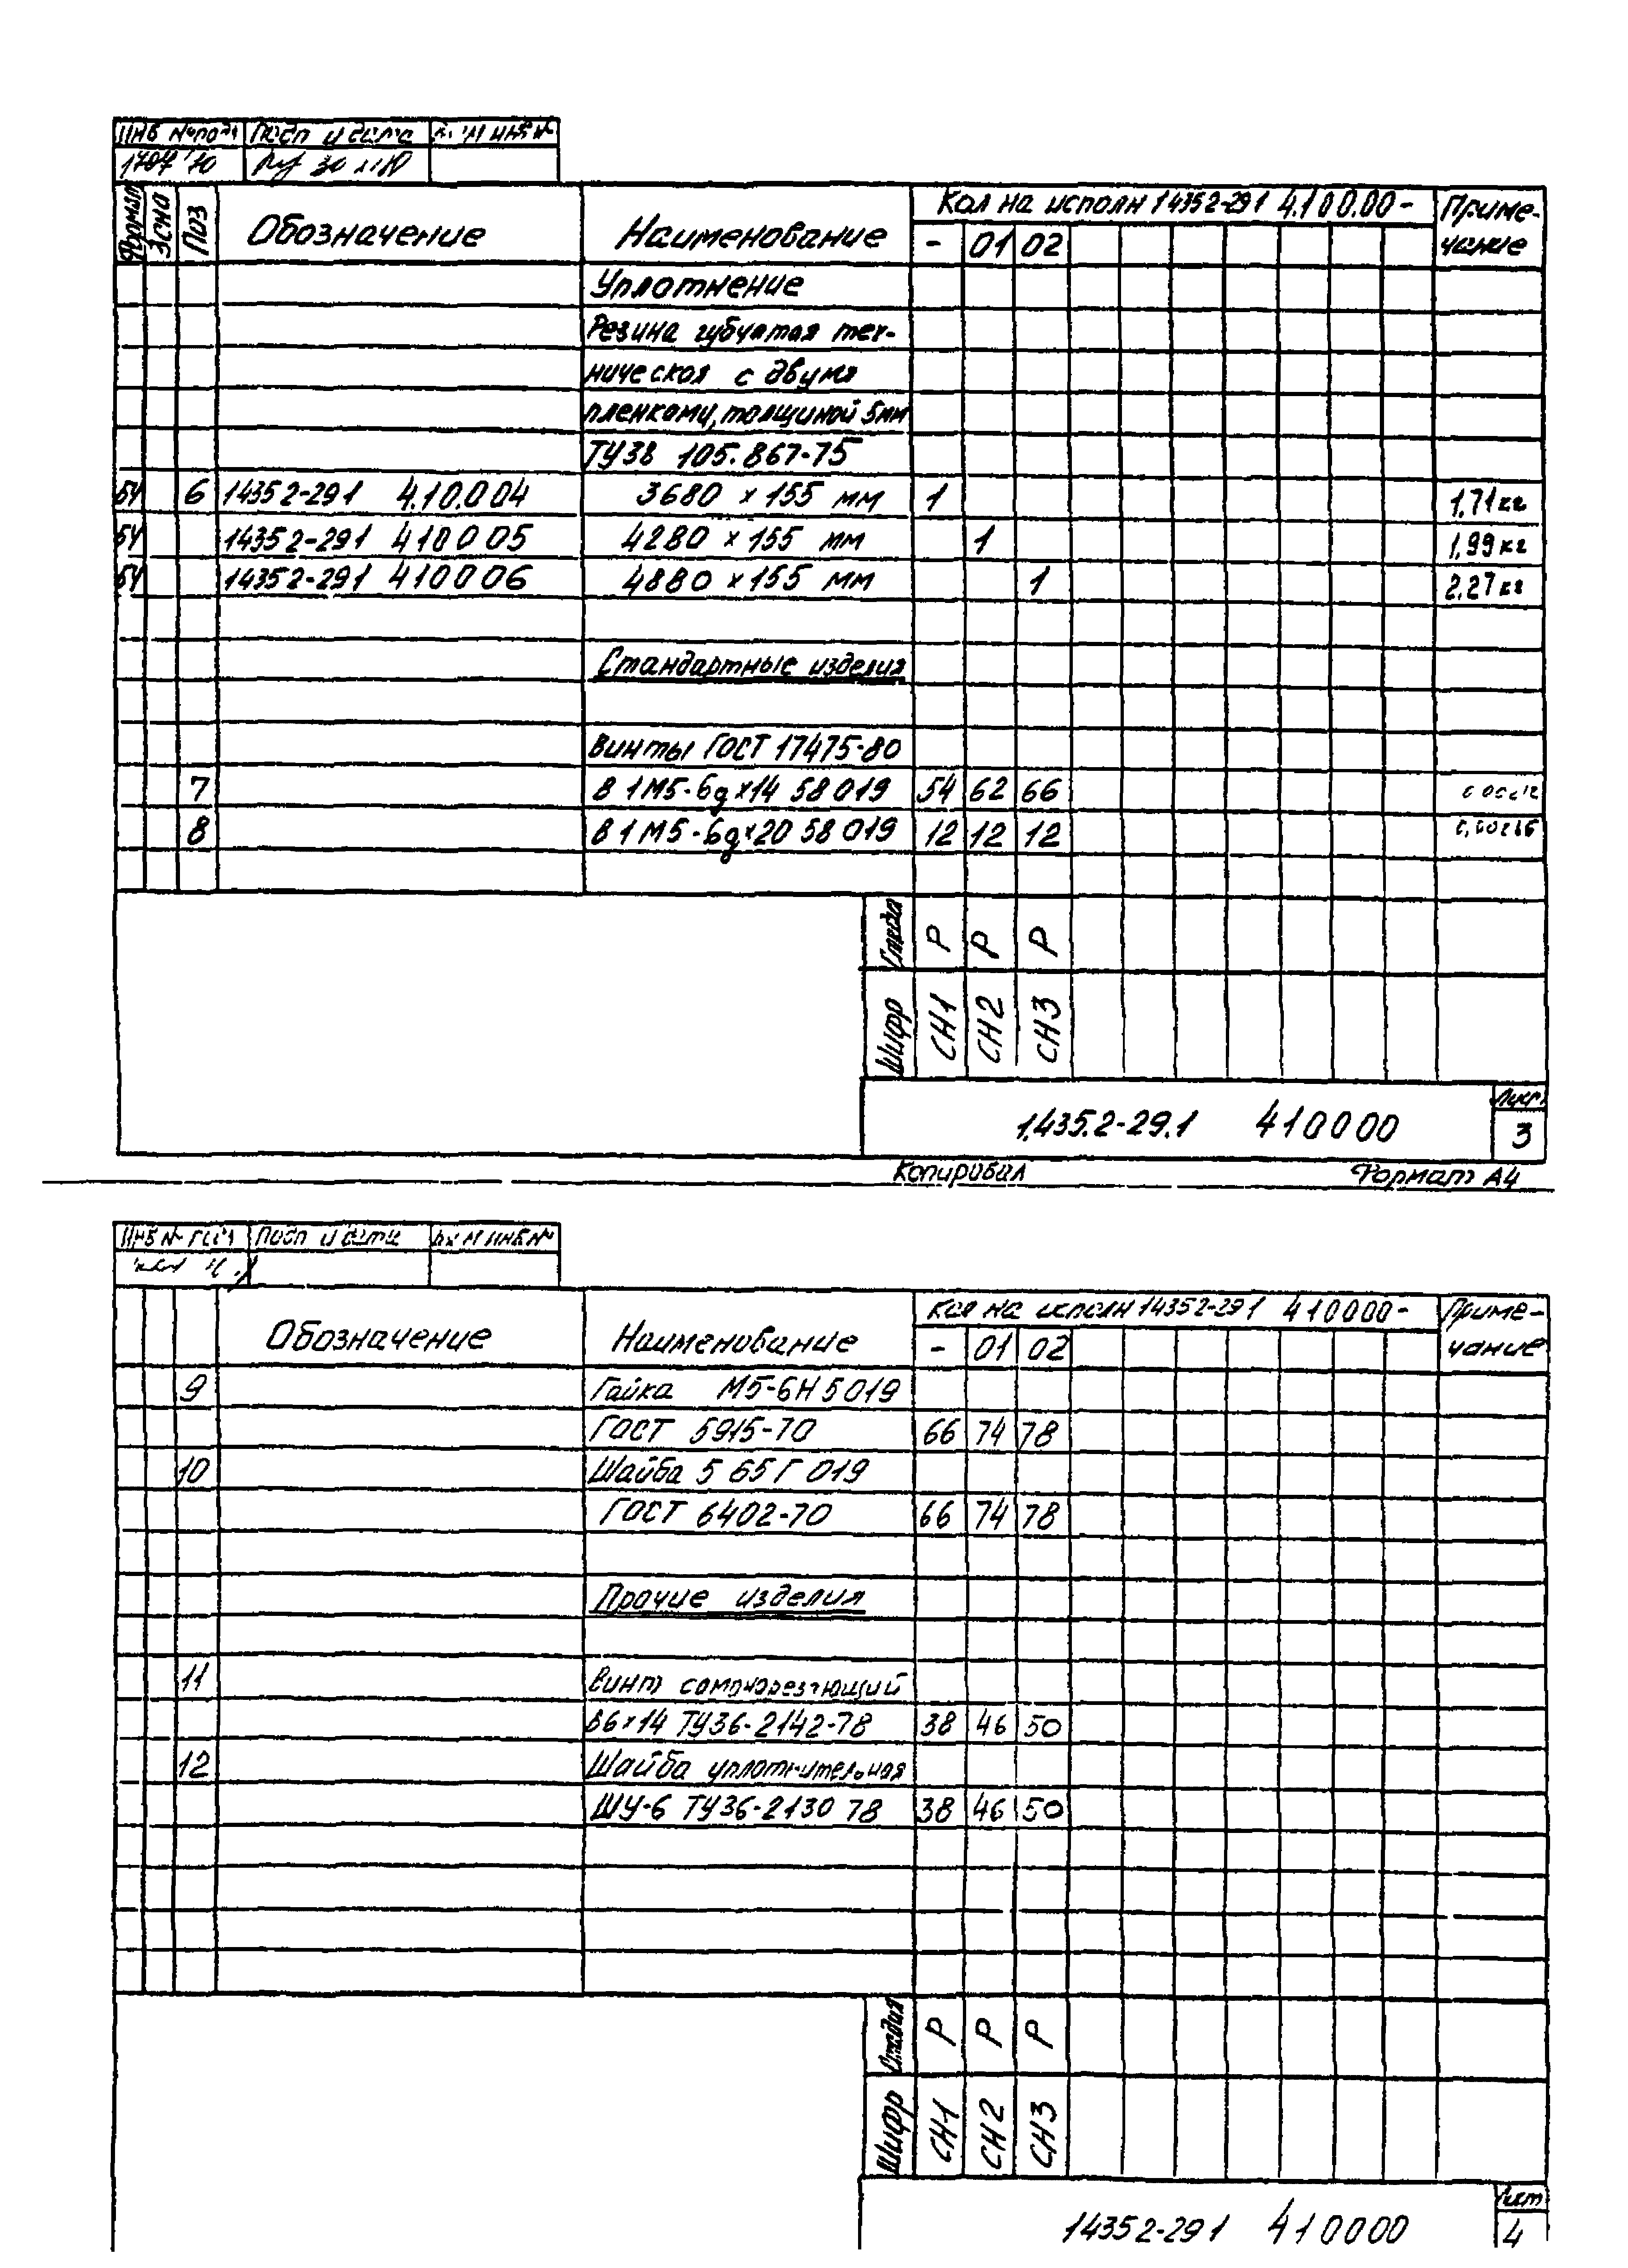 Инв № подл Подп и дата Взам инв №
Формат Зона Поз Обозначение Наименование Кол на исполн 14352-291 4.100.00- Приме-
- 01 02 чание
Уплотнение
Резина губчатая тех-
ническая с двумя
пленками, толщиной 5мм
ТУ38 105.867-75
БЧ 6 14352-291 4.10.0.04 3680 × 155 мм 1 1,71кг
БЧ 14352-291 410005 4280 × 155 мм 1 1,99кг
БЧ 14352-291 410006 4880 × 155 мм 1 2,27кг
Стандартные изделия
Винты ГОСТ 17475-80
7 В 1М5-6g×14 58 019 54 62 66
8 В 1М5-6g×20 58 019 12 12 12
Стадия Р Р Р
Шифр СН1 СН2 СН3
1.435.2-29.1 410000 Лист
3
Копировал Формат А4
Инв № подл Подп и дата Взам инв №
Обозначение Наименование Кол на исполн 14352-291 410000- Приме-
- 01 02 чание
9 Гайка М5-6Н 5 019
ГОСТ 5915-70 66 74 78
10 Шайба 5 65Г 019
ГОСТ 6402-70 66 74 78
Прочие изделия
11 Винт самонарезающий
В6×14 ТУ36-2142-78 38 46 50
12 Шайба уплотнительная
ШУ-6 ТУ36-2130 78 38 46 50
Стадия Р Р Р
Шифр СН1 СН2 СН3
14352-291 410000 Лист
4